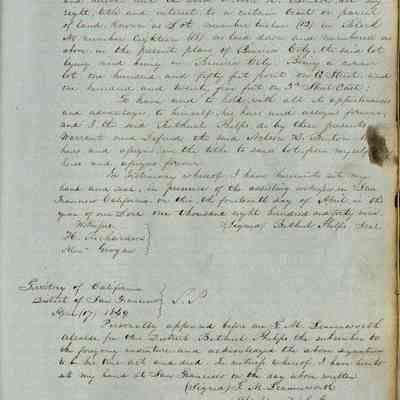 right, title and interest to a certain tract or parcel
of land, known as Lot number twelve (12) in Block
No number Eighteen (18) as laid down and numbered as
above in the present plan of Benicia City, the said lot
lying and being in Benicia City. Being a corner
lot one hundred and fifty feet front on G Street and
one hundred and twenty five feet on 3d Street East;
To have and to hold, with all its appurtenances
and advantages to himself, his heirs and assigns forever,
and I the said Bethuel Phelps do by these presents
Warrant and Defend the said
heirs and assigns in the title to said lot, from myself
heirs and assigns forever
In Testimony whereof I have hereunto set my
hand and seal, in presence of the assisting witnesses in San
Francisco California on this the fourteenth day of April in the
year of our Lord one thousand eight hundred forty nine
Witness (Signed) Bethuel Phelps Seal
H. Richardson
Alex Grogan
Territory of California
District of San Francisco } S.S.
April 17, 1849
Personally appeared before me T. M. Leavenworth
Alcalde for the District Bethuel Phelps the subscriber to
the foregoing indenture and acknowledged the above signature
to be his true act and deed. In witness whereof, I have hereto
set my hand at San Francisco on the day above written
(Signed) T. M. Leavenworth